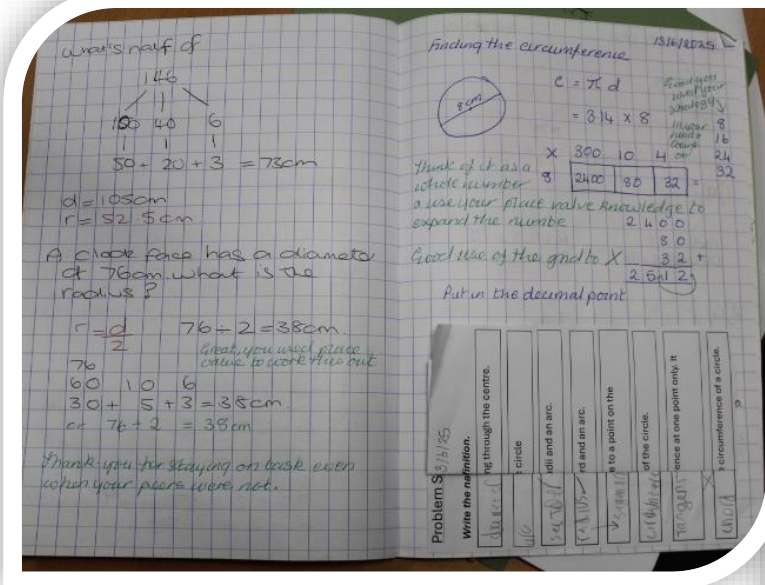 what's half of
146
100 40 6
50 + 20 + 3 = 73cm
d = 105cm
r = 52.5cm
A clock face has a diamete
of 76cm. what is the
radius?
r = d
2
76 ÷ 2 = 38cm.
Great, you used place
value to work this out
76
60 10 6
30 + 5 + 3 = 38cm.
or 76 ÷ 2 = 38cm
Thank you for staying on task even
when your peers were not.
Finding the circumference
13/6/2025
8cm
C = π d
= 314 × 8
Good you
In your
head
count
on
8
16
24
32
× 300 10 4
8 2400 80 32 =
Think of it as a
whole number
a use your place value knowledge to
expand the numbe
2400
80
32 +
2512
Good use of the grid to X
Put in the decimal point
Problem S
3/6/25
Write the na
finition.
ng through the centre.
circle
dii and an arc.
rd and an arc.
e to a point on the
of the circle.
ence at one point only. It
circumference of a circle.
sector
radius
tangent
chord